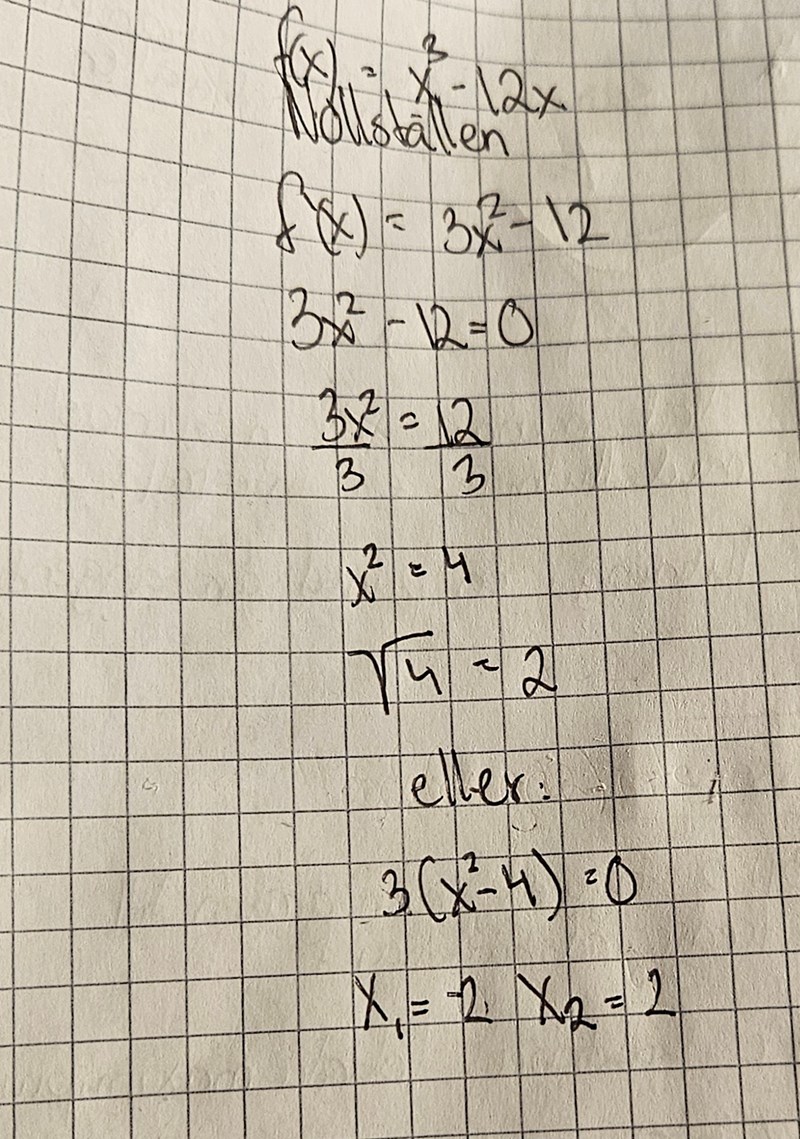 f(x) = x³ - 12x
Nollställen
f'(x) = 3x² - 12
3x² - 12 = 0
3x²/3 = 12/3
x² = 4
√4 = 2
eller:
3(x² - 4) = 0
x₁ = -2 x₂ = 2